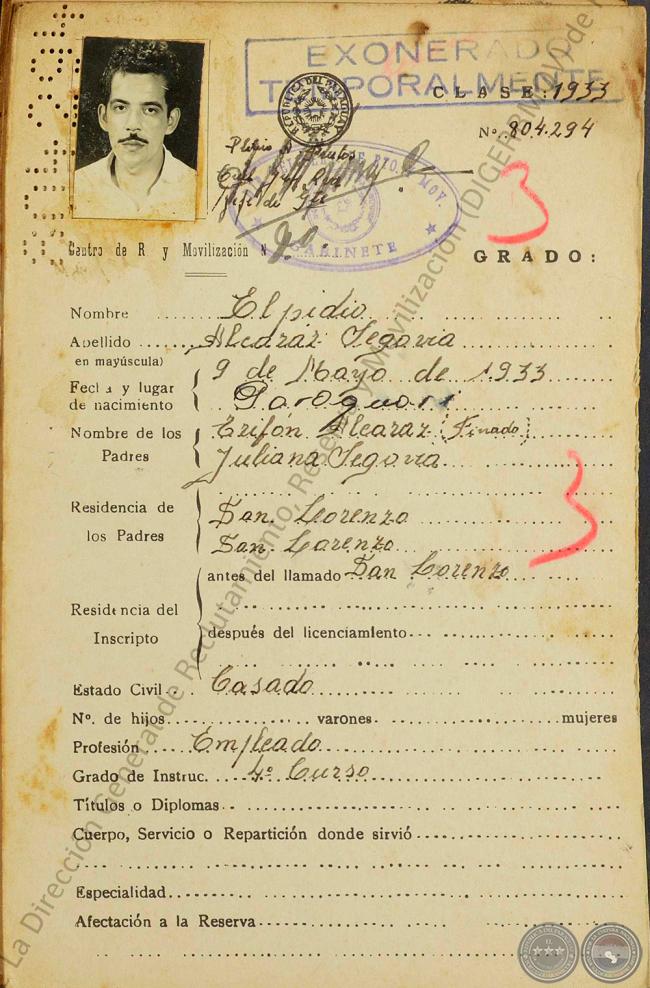 EXONERADO
TEMPORALMENTE
REPUBLICA DEL PARAGUAY
CLASE: 1933
Nº. 804.294
3
GABINETE
Centro de R y Movilización N
GRADO:
Nombre Elpidio
Apellido Alcaráz Segovia
en mayúscula)
9 de Mayo de 1933
Fecha y lugar
de nacimiento Paraguari
Nombre de los Alcaraz (Finado)
Padres Juliana Segovia
Residencia de San Lorenzo
los Padres San Lorenzo
antes del llamado San Lorenzo
3
Residencia del
Inscripto después del licenciamiento
Estado Civil Casado
Nº. de hijos varones mujeres
Profesión Empleado
Grado de Instruc. 4º Curso
Títulos o Diplomas
Cuerpo, Servicio o Repartición donde sirvió
Especialidad
Afectación a la Reserva
La Dirección General de Reclutamiento, Reserva y Movilización (DIGERRMOV) de